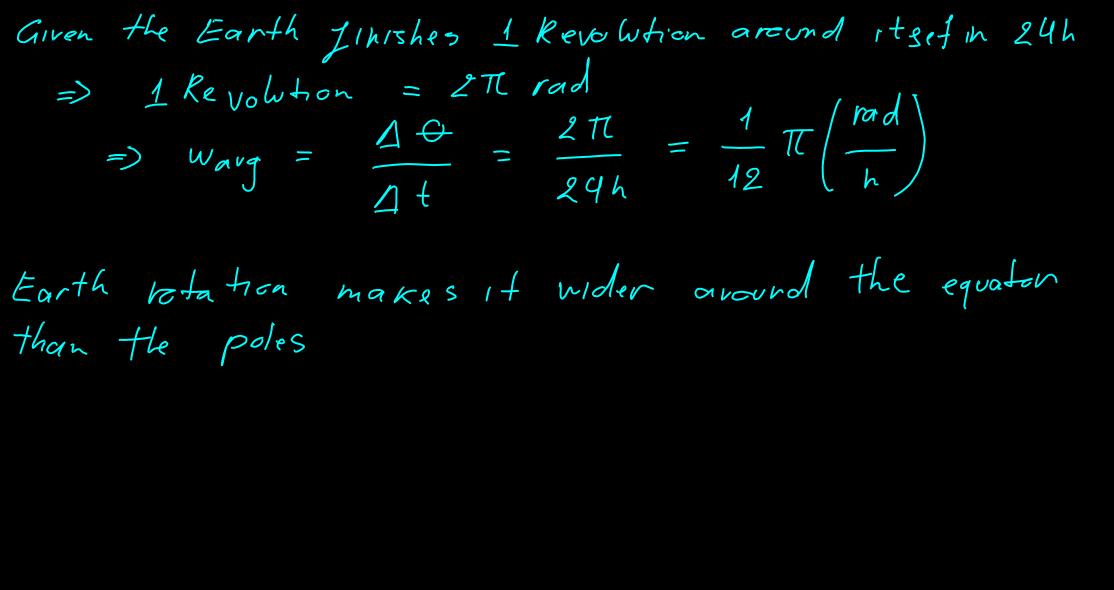 Given the Earth finishes 1 Revolution around itself in 24h
=> 1 Revolution = 2π rad
=> Wavg = Δθ/Δt = 2π/24h = 1/12 π (rad/h)
Earth rotation makes it wider around the equator
than the poles